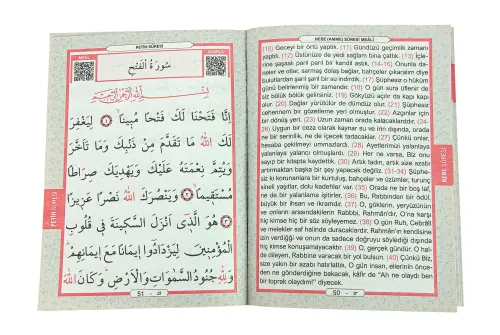 FETİH SÛRESİ
سُورَةُ الْفَتْحِ
بِسْمِ اللهِ الرَّحْمٰنِ الرَّحِيمِ
اِنَّا فَتَحْنَا لَكَ فَتْحًا مُبِينًا ﴿١﴾ لِيَغْفِرَ
لَكَ اللهُ مَا تَقَدَّمَ مِنْ ذَنْبِكَ وَمَا تَاَخَّرَ
وَيُتِمَّ نِعْمَتَهُ عَلَيْكَ وَيَهْدِيَكَ صِرَاطًا
مُسْتَقِيمًا ﴿٢﴾ وَيَنْصُرَكَ اللهُ نَصْرًا عَزِيزًا
﴿٣﴾ هُوَ الَّذِى اَنْزَلَ السَّكِينَةَ فِى قُلُوبِ
الْمُؤْمِنِينَ لِيَزْدَادُوا اِيمَانًا مَعَ اِيمَانِهِمْ
وَلِلّٰهِ جُنُودُ السَّمٰوَاتِ وَالْاَرْضِ وَكَانَ اللهُ
51
FETİH SÛRESİ
NEBE (AMME) SÛRESİ MEÂLİ
(10) Geceyi bir örtü yaptık. (11) Gündüzü geçimlik zamanı
yaptık. (12) Üstünüze de yedi sağlam bina çattık. (13) İçle-
rine şaşaalı parıl parıl bir kandil astık. (14-16) Onunla da-
neler ve otlar, sarmaş dolaş bağlar, bahçeler çıkaralım diye
bulutlardan şarıl şarıl bir su indirdik. (17) Şüphesiz o hüküm
günü belirlenmiş bir zamandır. (18) O gün sûra üflenir de
siz bölük bölük gelirsiniz. (19) Gökyüzü açılır da kapı kapı
olur. (20) Dağlar yürütülür de dümdüz olur. (21) Şüphesiz
cehennem bir gözetleme yeri olmuştur. (22) Azgınlar için
bir dönüş yeri. (23) Uzun zaman orada kalacaklardır. (24-
26) Uygun bir ceza olarak kaynar su ve irin dışında, orada
ne bir serinlik, ne de içecek tadacaklar. (27) Çünkü onlar,
hesaba çekilmeyi ummazlardı. (28) Ayetlerimizi yalanlaya
yalanlaya yalancı olmuşlardı. (29) Her ne varsa, Biz onu
sayıp bir kitapta kaydettik. (30) Artık tadın, artık size azabı
artırmaktan başka bir şey yapacak değiliz. (31-34) Şüphesiz
ki korunanlara bir kurtuluş, bahçeler ve üzümler, turunç
sineli yaşıtlar, dolu kadehler var. (35) Orada ne bir boş laf,
ne de bir yalanlama işitirler. (36) Bu, Rabbinden bir ödül,
büyük bir ihsan ve ikramdır. (37) O, göklerin, yeryüzünün
ve onların arasındakilerin Rabbidir, Rahmân'dır, O'na karşı
hiç kimse hiç bir söz söyleyemez. (38) O gün Ruh, Cebrâil
ve melekler saf halinde duracaklardır. Rahmân'ın kendisine
izin verdiği ve onun da sadece doğruyu söylediği dışında
hiç kimse konuşamayacaktır. (39) O, gerçek gündür. O hal-
de dileyen, Rabbine varacak bir yol bulsun. (40) Çünkü Biz,
size yakın bir azabı hatırlattık. O gün insan, ellerinin önce-
den ne gönderdiğine bakacak, kâfir de "Ah ne olaydı ben
bir toprak olaydım!" diyecek.
NEBE SÛRESİ
50